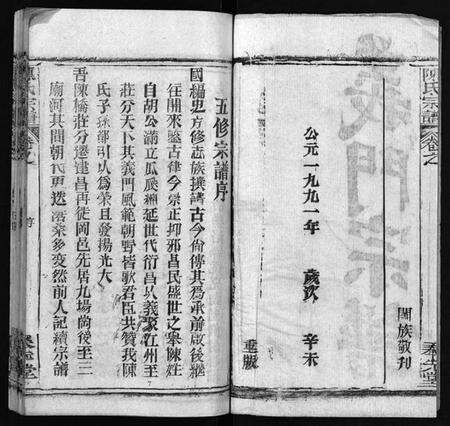 陳氏宗譜
卷之
義門宗譜
闔族敬刊
公元一九九一年 歲次 辛未
重版
五修宗譜序
國編史方修志族撰譜古今尚傳其為承前啟後繼
往開來鑒古律今崇正抑邪昌民盛世之舉陳姓
自胡公滿立瓜瓞綿延世代衍昌以義家江州至
莊分天下其義門風範朝野皆歌君臣共贊我陳
氏子孫都引以為榮且發揚光大
吾陳橋莊分遷建昌再徙岡邑先居九場崗後至三
廟河其間朝代更迭滄桑多變然前人記續宗譜
陳氏宗譜
卷之
序